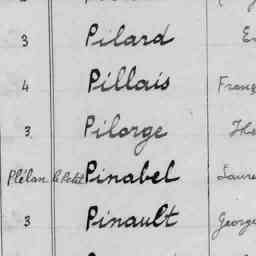 3 Pilard
4 Pillais Franç
3 Pilorge
Plélan le Petit Pinabel Laure
3 Pinault George